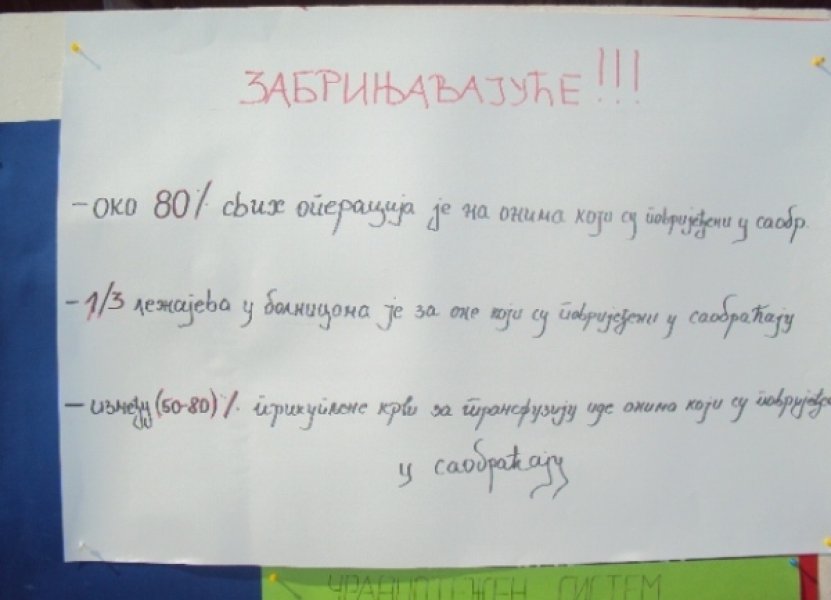 ЗАБРИЊАВАЈУЋЕ!!!
- ОКО 80% свих операција је на онима који су повријеђени у саобр.
- 1/3 лежајева у болницома је за оне који су повријеђени у саобраћају
- између (50-80)% прикупљене крви за трансфузију иде онима који су повријеђе
у саобраћају
УРАВНОТЕЖЕН СИСТЕМ